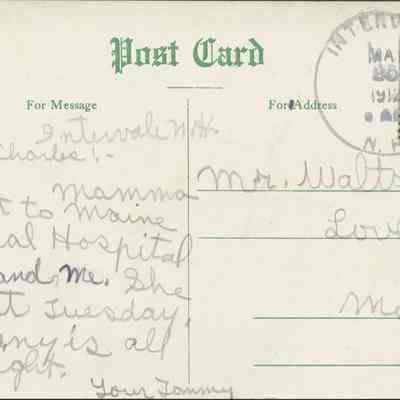 Post Card
For Message
For Address
INTERV
MA
30
1912
A
N. H
Intervale N.H.
Charles:-
Mamma
t to Maine
al Hospital
and, Me. She
t Tuesday.
ny is all
ght.
Your Tommy
Mr. Walto
Lov
Ma